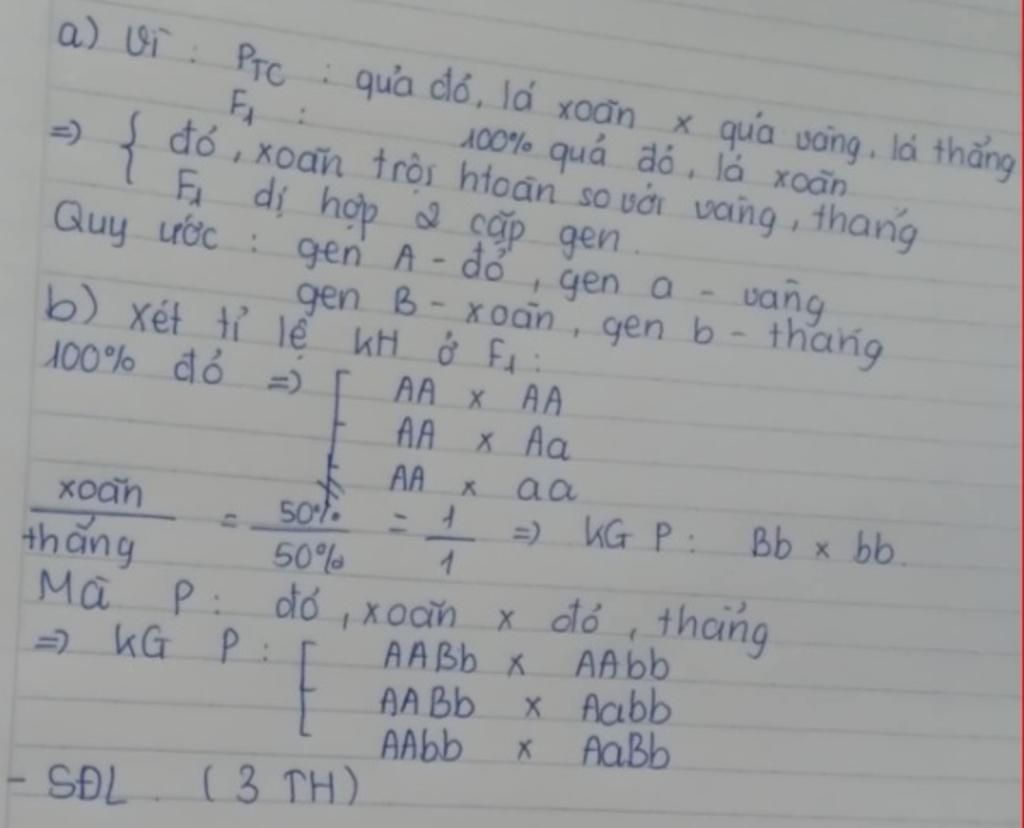 a) Vì : PTC : quả đỏ, lá xoăn x quả vàng, lá thẳng
F1 : 100% quả đỏ, lá xoăn
=> { đỏ, xoăn trội htoàn so với vàng, thẳng
F1 dị hợp 2 cặp gen.
Quy ước : gen A - đỏ, gen a - vàng
gen B - xoăn, gen b - thẳng
b) xét tỉ lệ KH ở F1 :
100% đỏ => [ AA x AA
AA x Aa
AA x aa
xoăn / thẳng = 50% / 50% = 1 / 1 => KG P : Bb x bb.
Mà P : đỏ, xoăn x đỏ, thẳng
=> KG P : [ AABb x AAbb
AABb x Aabb
AAbb x AaBb
- SĐL. (3 TH)